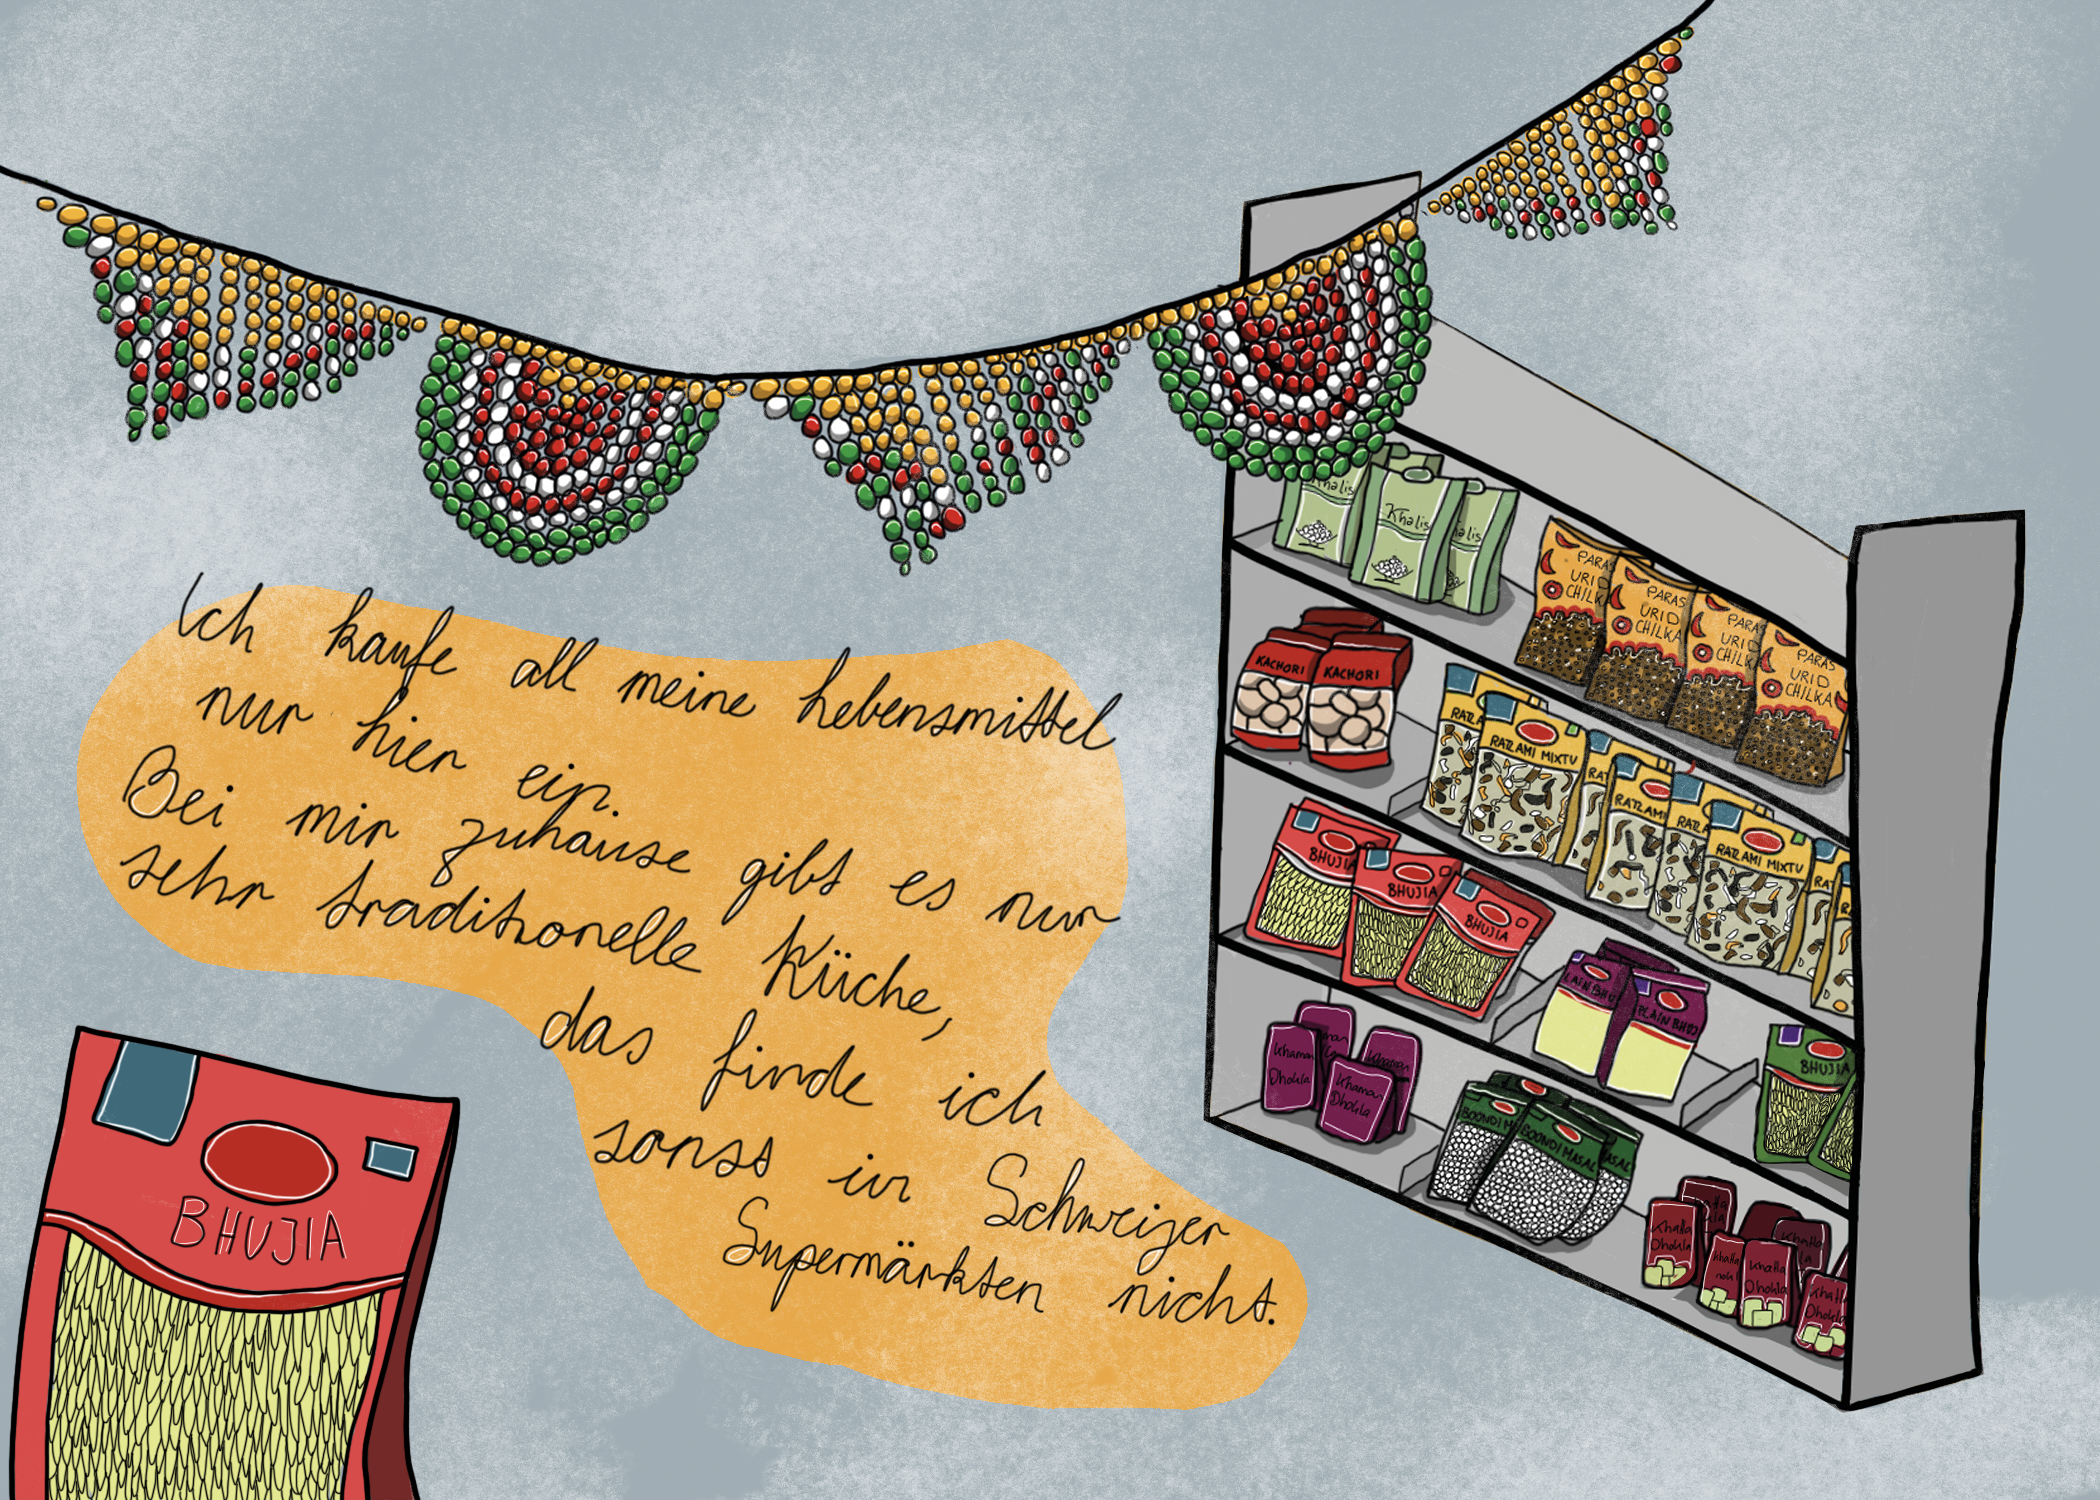 Ich kaufe all meine Lebensmittel
nur hier ein.
Bei mir zuhause gibt es nur
sehr traditionelle Küche,
das finde ich
sonst in Schweizer
Supermärkten nicht.
BHUJIA
Khalis
Khalis
alis
PARAS
URID
CHILK
PARAS
URID
CHILKA
PARAS
URID
CHILK
PARAS
URID
CHILKA
KACHORI
KACHORI
RATLA
RATLAMI MIXTU
RAT
RATLAMI
RATLA
RATLAMI MIXTU
RAT
BHUJIA
BHUJIA
BHUJIA
LAIN BHU
PLAIN BHUJ
BHUJIA
Khaman
Dhokla
Khaman
Khaman
Dhokla
BOONDI M
BOONDI MASAL
ASAL
Khatta
Dhokla
Khatta
Khatta
Khatta
Dhokla
Khatta
Dhokla